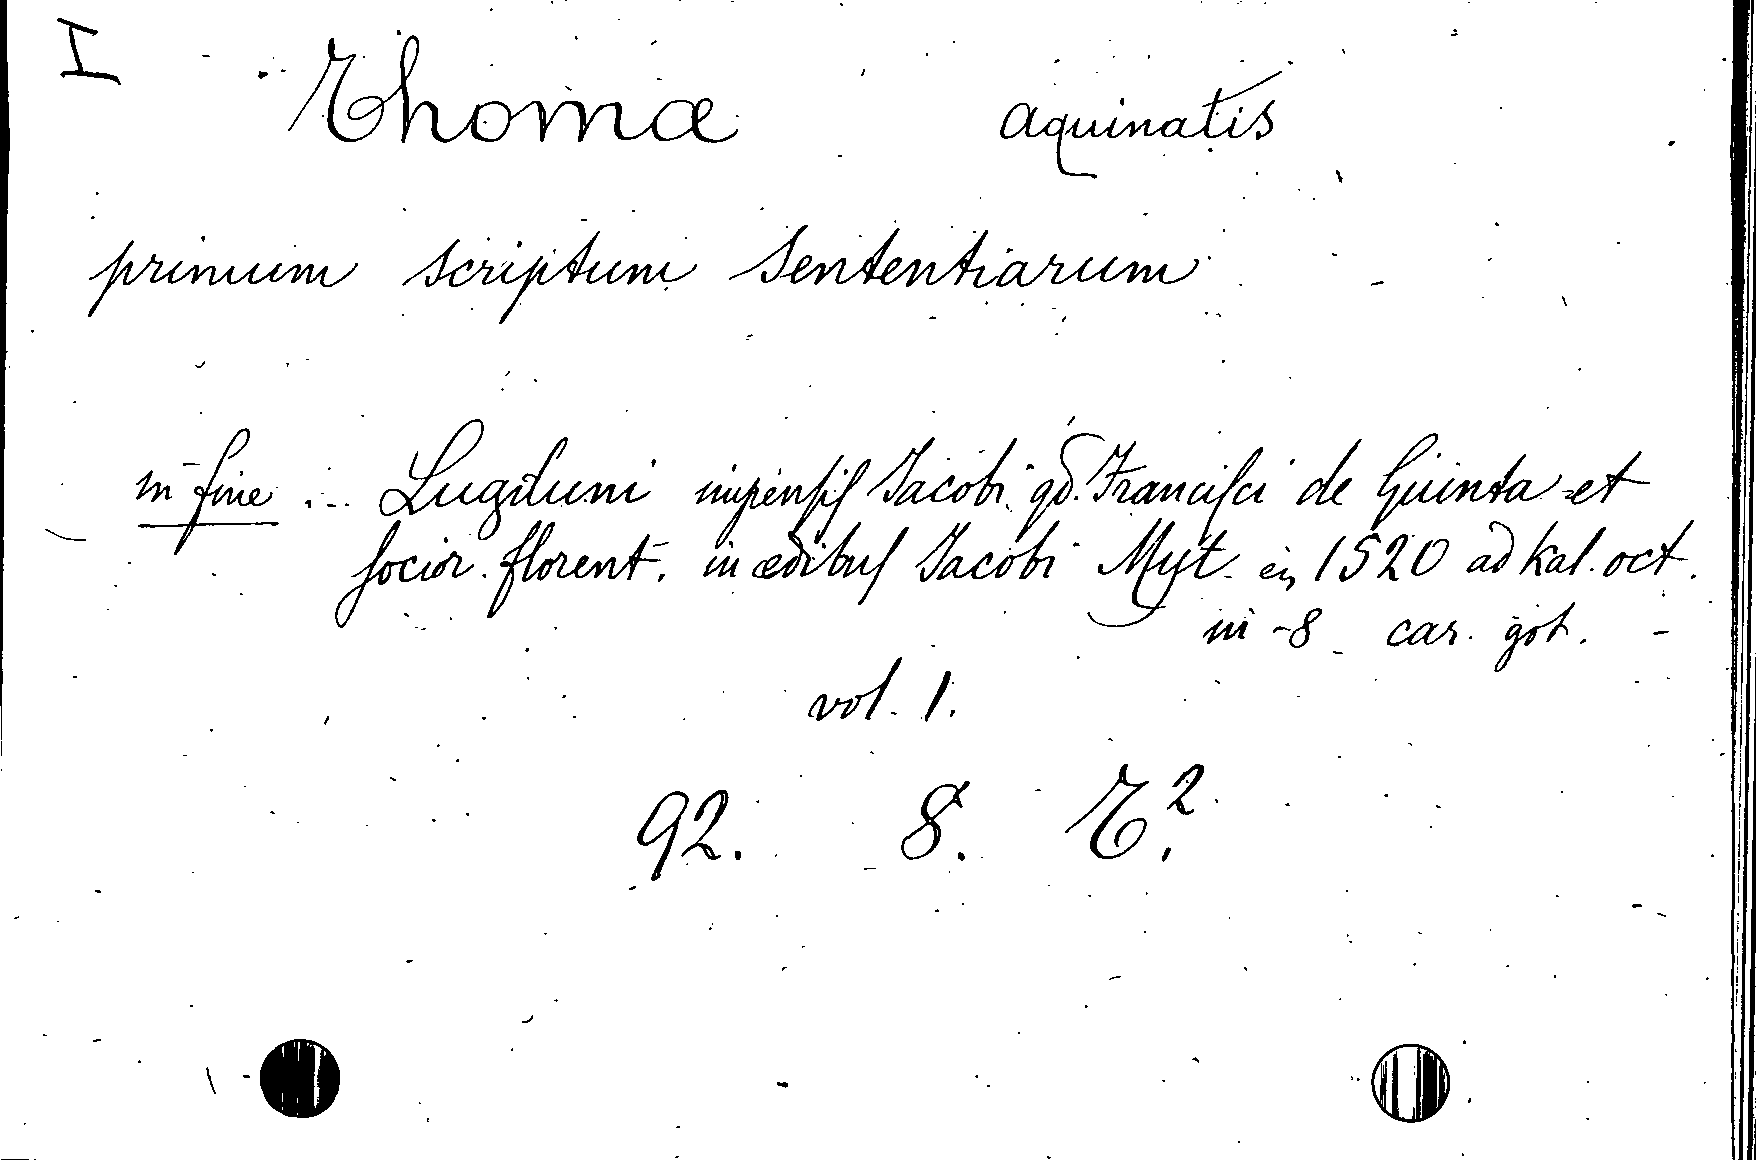 I
Thomæ aquinatis
primum scriptum Sententiarum
in fine ... Lugduni impensis Jacobi qd. Francisci de Giunta et
socior. florent. in ædibus Jacobi Myt. 1520 ad kal. oct.
in-8 car. got.
vol. 1.
92. 8. T².